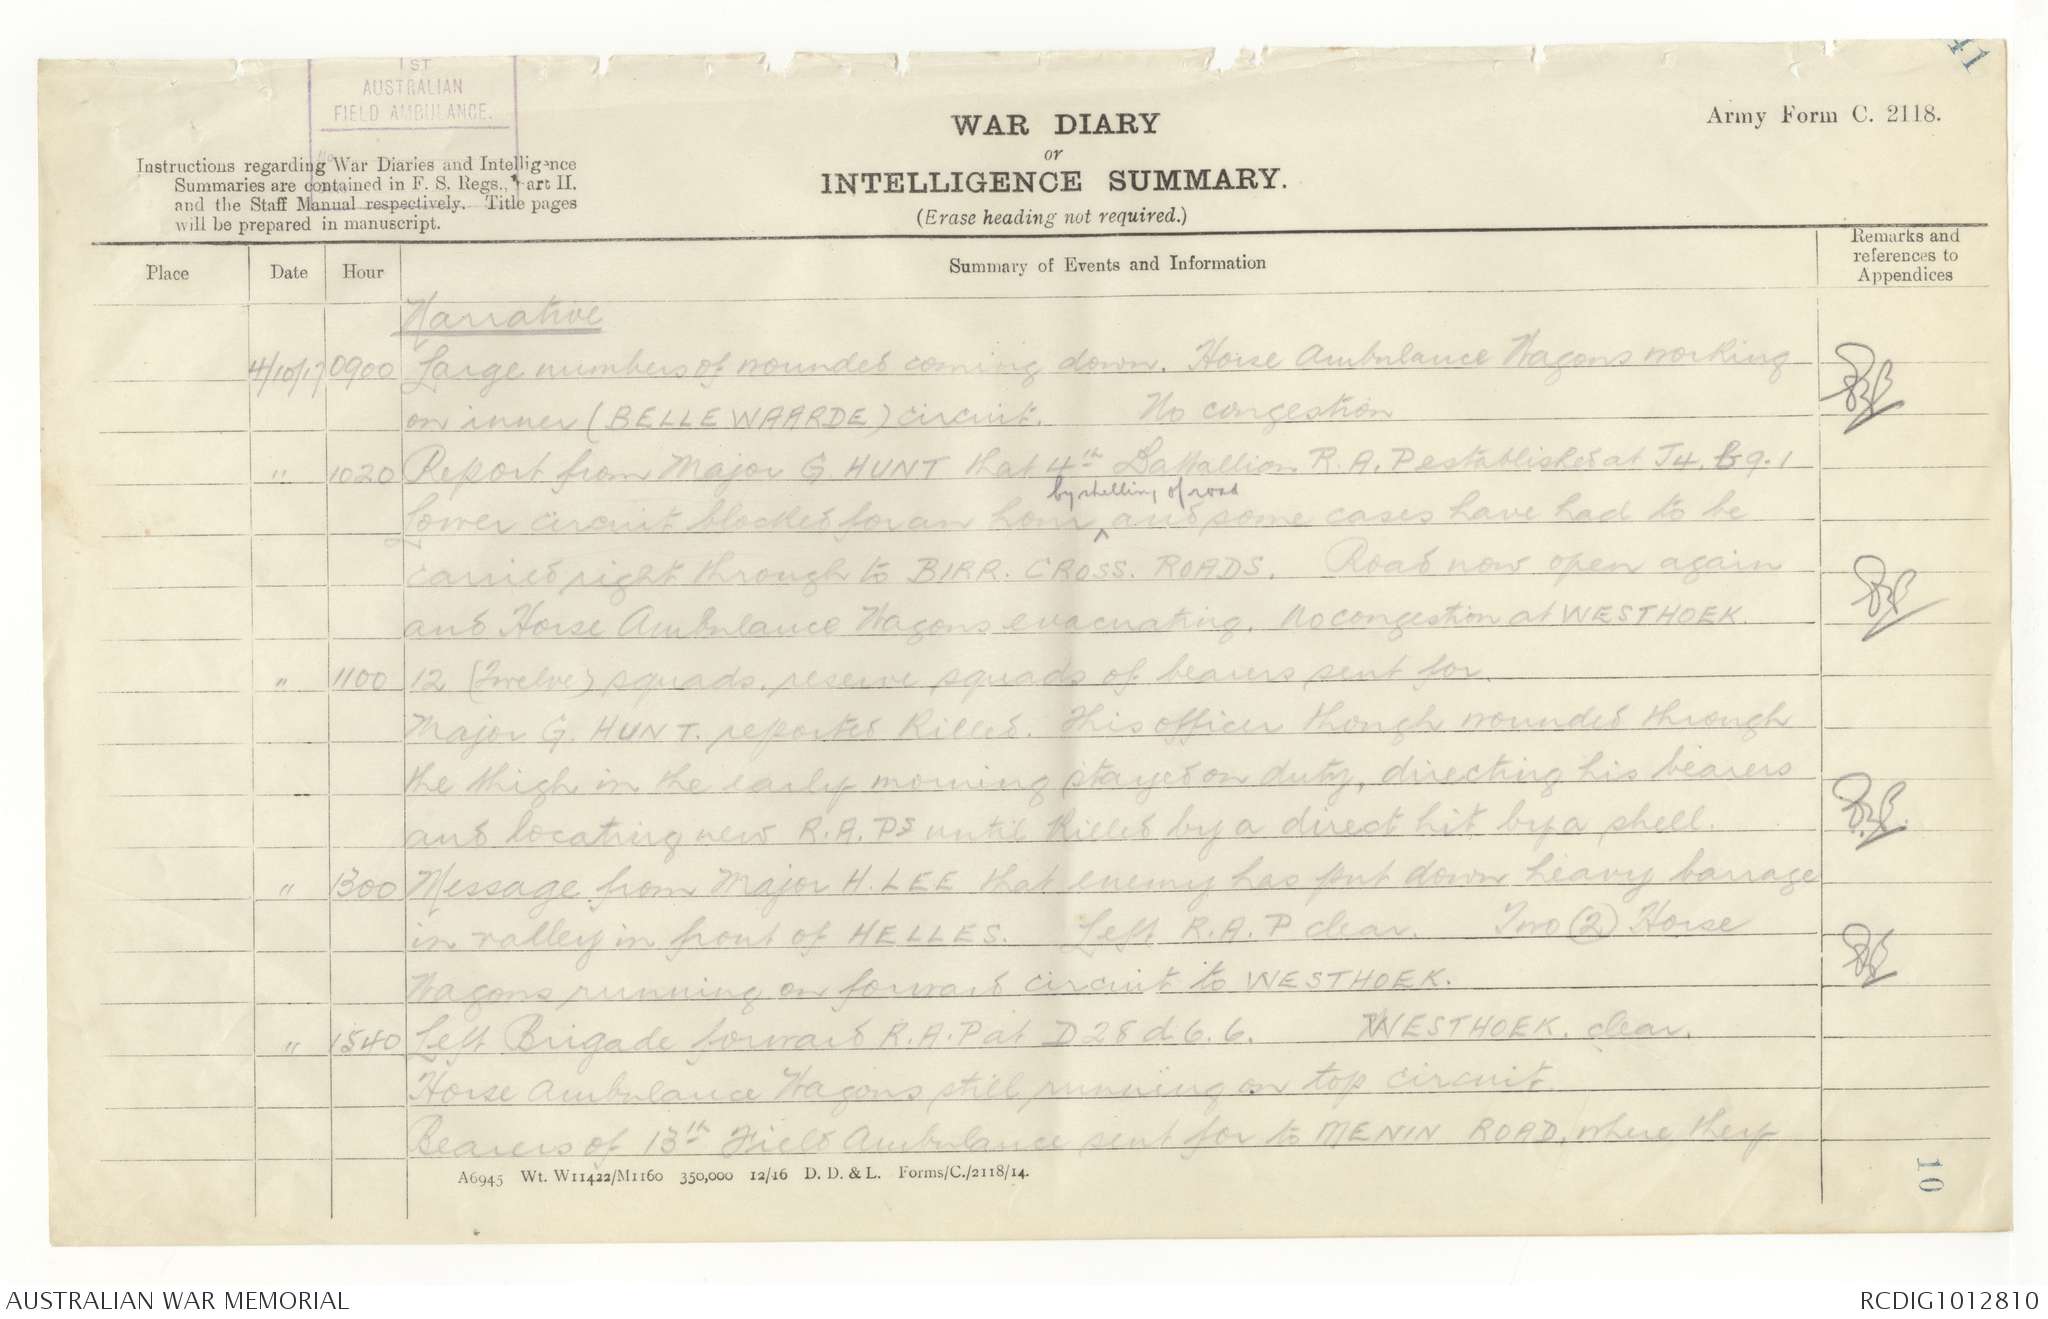 41
1ST
AUSTRALIAN
FIELD AMBULANCE.
Army Form C. 2118.
WAR DIARY
or
INTELLIGENCE SUMMARY.
(Erase heading not required.)
Instructions regarding War Diaries and Intelligence
Summaries are contained in F. S. Regs., Part II.
and the Staff Manual respectively. Title pages
will be prepared in manuscript.
Place Date Hour Summary of Events and Information Remarks and references to Appendices
Narrative
4/10/17 0900 Large numbers of wounded coming down. Horse Ambulance Wagons working
on inner (BELLE WAARDE) circuit. No congestion
" 1020 Report from Major G HUNT that 4th Battallion R.A.P established at J4. b9.1
by shelling of road
Lower circuit blocked for an hour ^ and some cases have had to be
carried right through to BIRR. CROSS. ROADS. Road now open again
and Horse Ambulance Wagons evacuating. No congestion at WESTHOEK.
" 1100 12 (Twelve) squads. reserve squads of bearers sent for.
Major G. HUNT. reported Killed. This officer though wounded through
the thigh in the early morning stayed on duty, directing his bearers
and locating new R.A.Ps until Killed by a direct hit by a shell.
" 1300 Message from Major H. LEE that enemy has put down heavy barrage
in valley in front of HELLES. Left R.A.P clear. Two (2) Horse
Wagons running on forward circuit to WESTHOEK.
" 1540 Left Brigade forward R.A.P at D28 d.6.6. WESTHOEK. clear.
Horse Ambulance Wagons still running on top circuit
Bearers of 13th Field Ambulance sent for to MENIN ROAD, where they
A6945 Wt. W11422/M1160 350,000 12/16 D. D. & L. Forms/C./2118/14.
10
AUSTRALIAN WAR MEMORIAL
RCDIG1012810